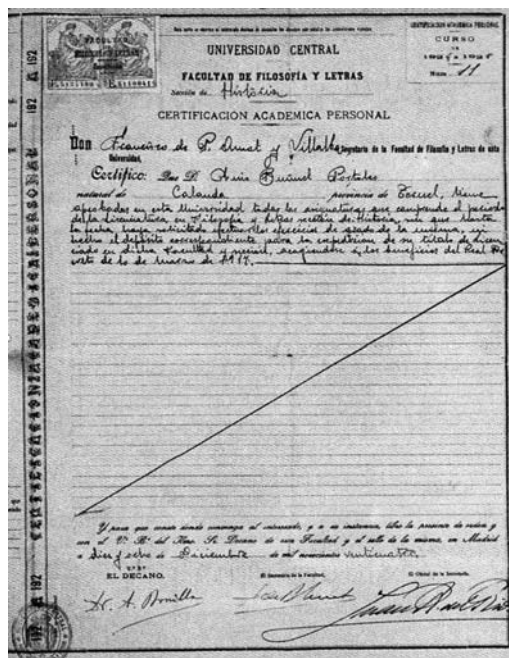 CERTIFICACION ACADEMICA PERSONAL
CURSO
DE
Núm. 11
FACULTAD
UNIVERSIDAD CENTRAL
FACULTAD DE FILOSOFÍA Y LETRAS
Sección de Historia
CERTIFICACIÓN ACADEMICA PERSONAL
Don Francisco de P. Amat y Villalba Secretario de la Facultad de Filosofía y Letras de esta
Universidad,
Certifico: Que D. Luis Buñuel Portolés
natural de Calanda provincia de Teruel, tiene
aprobadas en esta Universidad todas las asignaturas que comprende el periodo
de la Licenciatura en Filosofía y Letras sección de Historia, sin que hasta
la fecha haya solicitado efectuar los ejercicios de grado de la misma, ni
hecho el depósito correspondiente para la expedición de su título de Licen
ciado en dicha Facultad y acogiéndose a los beneficios del Real De
creto de 10 de marzo de 1917.
Y para que conste donde convenga al interesado, y a su instancia, libro la presente de orden y
con el V.º B.º del Ilmo. Sr. Decano de esta Facultad y el sello de la misma, en Madrid
a diez y ocho de Diciembre de mil novecientos veinticuatro.
EL DECANO,
El Secretario de la Facultad,
El Oficial de la Secretaría,
A. Bonilla
192
192
192
192